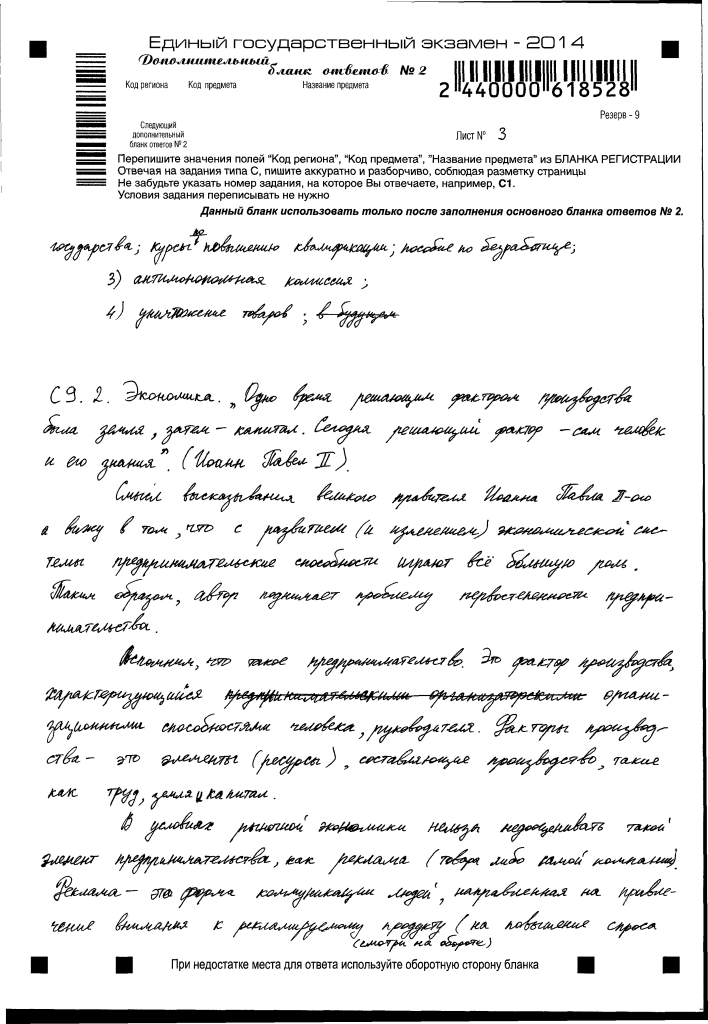 Единый государственный экзамен - 2014
Дополнительный
бланк ответов № 2
Код региона Код предмета Название предмета
2 440000 618528
Резерв - 9
Следующий
дополнительный
бланк ответов № 2
Лист № 3
Перепишите значения полей "Код региона", "Код предмета", "Название предмета" из БЛАНКА РЕГИСТРАЦИИ
Отвечая на задания типа С, пишите аккуратно и разборчиво, соблюдая разметку страницы
Не забудьте указать номер задания, на которое Вы отвечаете, например, С1.
Условия задания переписывать не нужно
Данный бланк использовать только после заполнения основного бланка ответов № 2.
государства; курсы по повышению квалификации; пособие по безработице;
3) антимонопольная комиссия ;
4) уничтожение товаров ; в будущем
С 9. 2. Экономика. „Одно время решающим фактором производства
была земля, затем – капитал. Сегодня решающий фактор – сам человек
и его знания". (Иоанн Павел II).
Смысл высказывания великого правителя Иоанна Павла II-ого
я вижу в том, что с развитием (и изменением) экономической сис-
темы предпринимательские способности играют всё бóльшую роль.
Таким образом, автор поднимает проблему первостепенности предпри-
нимательства.
Вспомним, что такое предпринимательство. Это фактор производства,
характеризующийся предпринимательскими организаторскими органи-
зационными способностями человека, руководителя. Факторы производ-
ства – это элементы (ресурсы), составляющие производство, такие
как труд, земля и капитал.
В условиях рыночной экономики нельзя недооценивать такой
элемент предпринимательства, как реклама (товара либо самой компании).
Реклама – это форма коммуникации людей, направленная на привле-
чение внимания к рекламируемому продукту (на повышение спроса
(смотри на обороте)
При недостатке места для ответа используйте оборотную сторону бланка